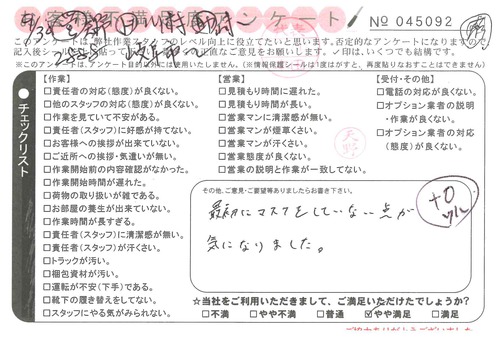 アンケート
№ 045092
このアンケートは、弊社作業スタッフのレベル向上に役立てたいと思います。否定的なアンケートになりますので
記入後シールを貼って
忌憚のないご意見をお願いします。✓印は、いくつでも結構です。
※このアンケートは、アンケート目的以外には使用いたしません。(※情報保護シールは1度はがすと、再度貼りなおすことはできません)
チェックリスト
【作業】
□責任者の対応(態度)が良くない。
□他のスタッフの対応(態度)が良くない。
□作業を見ていて不安がある。
□責任者(スタッフ)に好感が持てない。
□お客様への挨拶が出来ていない。
□ご近所への挨拶・気遣いが無い。
□作業開始前の内容確認がなかった。
□作業開始時間が遅れた。
□荷物の取り扱いが雑である。
□お部屋の養生が出来ていない。
□作業時間が長すぎる。
□責任者(スタッフ)に清潔感が無い。
□責任者(スタッフ)が汗くさい。
□トラックが汚い。
□梱包資材が汚い。
□運転が不安(下手)である。
□靴下の履き替えをしてない。
□スタッフにやる気がみられない。
【営業】
□見積もり時間に遅れた。
□見積もり時間が長い。
□営業マンに清潔感が無い。
□営業マンが煙草くさい。
□営業マンが汗くさい。
□営業態度が良くない。
□営業の説明と作業が一致してない。
【受付・その他】
□電話の対応が良くない。
□オプション業者の説明
・作業が良くない。
□オプション業者の対応
(態度)が良くない。
天野
その他、ご意見・ご要望等ありましたらお書き下さい。
最初にマスクをしていない点が
気になりました。
+0
☆当社をご利用いただきまして、ご満足いただけたでしょうか?
□不満 □やや不満 □普通 ☑やや満足 □満足
ご協力ありがとうございました